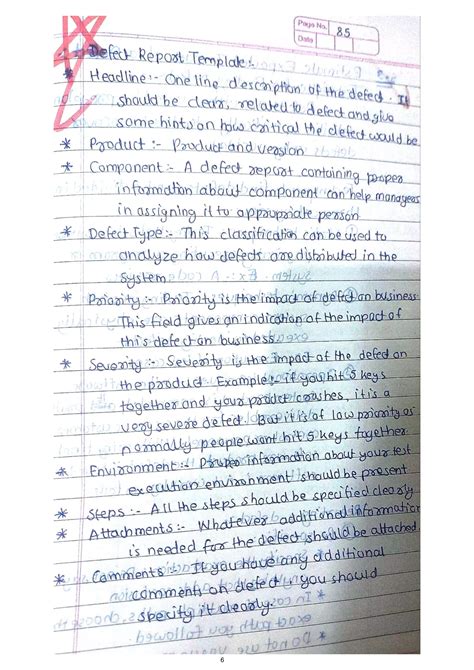 Page No. 85
Date
Defect Report Template:-
* Headline:- One line description of the defect. It
should be clear, related to defect and give
some hints on how critical the defect would be
* Product :- Product and version
* Component:- A defect report containing proper
information about component can help managers
in assigning it to appropriate person
* Defect Type:- This classification can be used to
analyze how defects are distributed in the
system
* Priority :- Priority is the impact of defect on business
This field gives an indication of the impact of
this defect on business
* Severity :- Severity is the impact of the defect on
the product Example:- if you hit 5 keys
together and your product crashes, it is a
very severe defect. But it is of low priority as
normally people want hit 5 keys together
* Environment:- Proper information about your test
execution environment should be present
* Steps :- All the steps should be specified clearly
* Attachments:- Whatever additional information
is needed for the defect should be attached
* Comments :- If you have any additional
comment on defect, you should
specify it clearly.
6